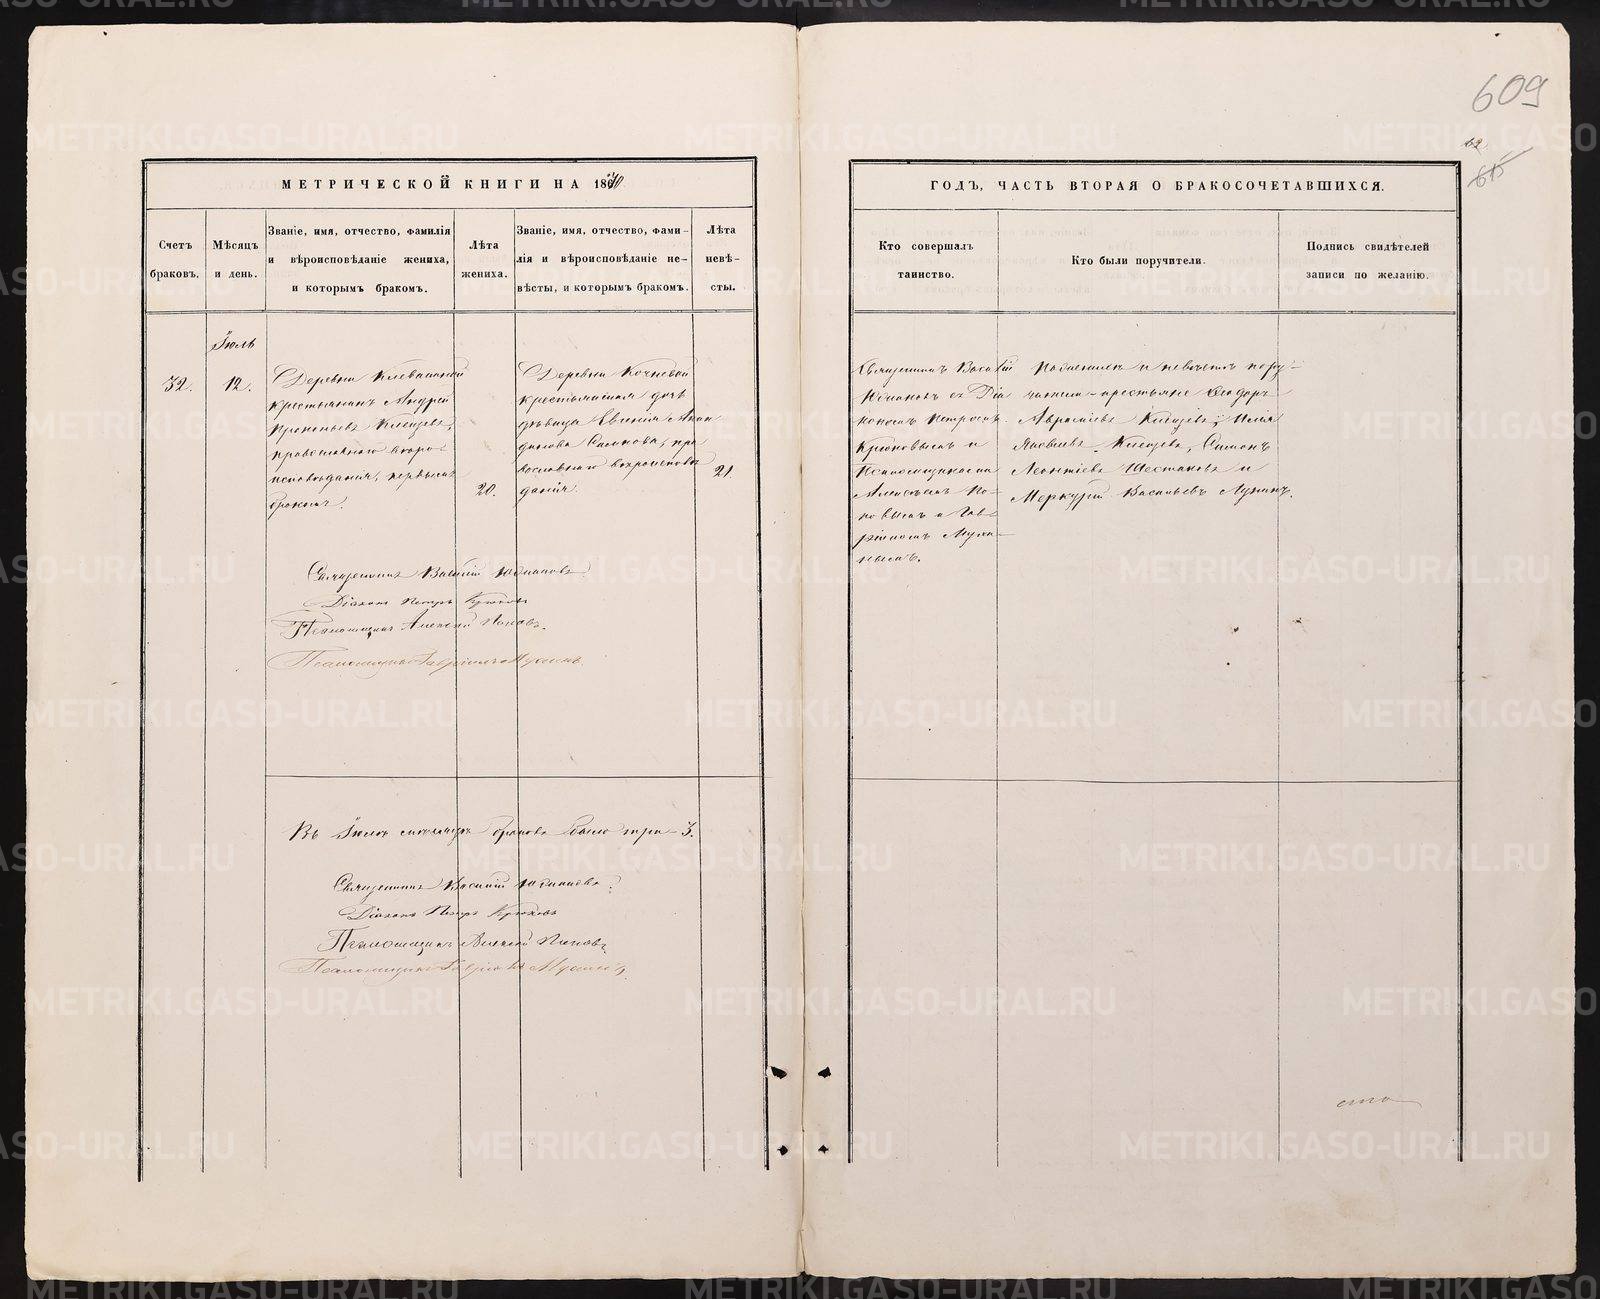 609
62
615
МЕТРИЧЕСКОЙ КНИГИ НА 1870
ГОДЪ, ЧАСТЬ ВТОРАЯ О БРАКОСОЧЕТАВШИХСЯ.
Счетъ
браковъ.
Мѣсяцъ
и день.
Званіе, имя, отчество, фамилія
и вѣроисповѣданіе жениха,
и которымъ бракомъ.
Лѣта
жениха.
Званіе, имя, отчество, фами-
лія и вѣроисповѣданіе не-
вѣсты, и которымъ бракомъ.
Лѣта
невѣ-
сты.
Кто совершалъ
таинство.
Кто были поручители.
Подпись свидѣтелей
записи по желанію.
Іюль
32.
12.
Деревни Клевакиной
крестьянинъ Андрей
Прокопьевъ Клещевъ,
православнаго вѣро-
исповѣданія, первымъ
бракомъ.
20.
Деревни Кочневой
крестьянская дочь
дѣвица Евгенія
православнаго вѣроисповѣ
данія.
21.
Священникъ Василій
Юдмановъ съ Діа
кономъ Петромъ
Крюковымъ и
Псаломщиками
Алексѣемъ По-
повымъ и Гав-
ріиломъ
По женихѣ и невѣстѣ пору-
чители крестьяне Ѳеодоръ
Клещевъ, Илья
Яковлевъ Клещевъ, Симонъ
Леонтіевъ Шестаковъ и
Меркурій Васильевъ Лукинъ.
Священникъ Василій Юдмановъ
Діаконъ Петръ Крюковъ
Псаломщикъ Алексѣй Поповъ.
Псаломщикъ Гавріилъ
Въ Іюлѣ мѣсяцѣ браковъ было три 3.
Священникъ Василій Юдмановъ
Діаконъ Петръ Крюковъ
Псаломщикъ Алексѣй Поповъ
Псаломщикъ Гавріилъ
METRIKI.GASO-URAL.RU